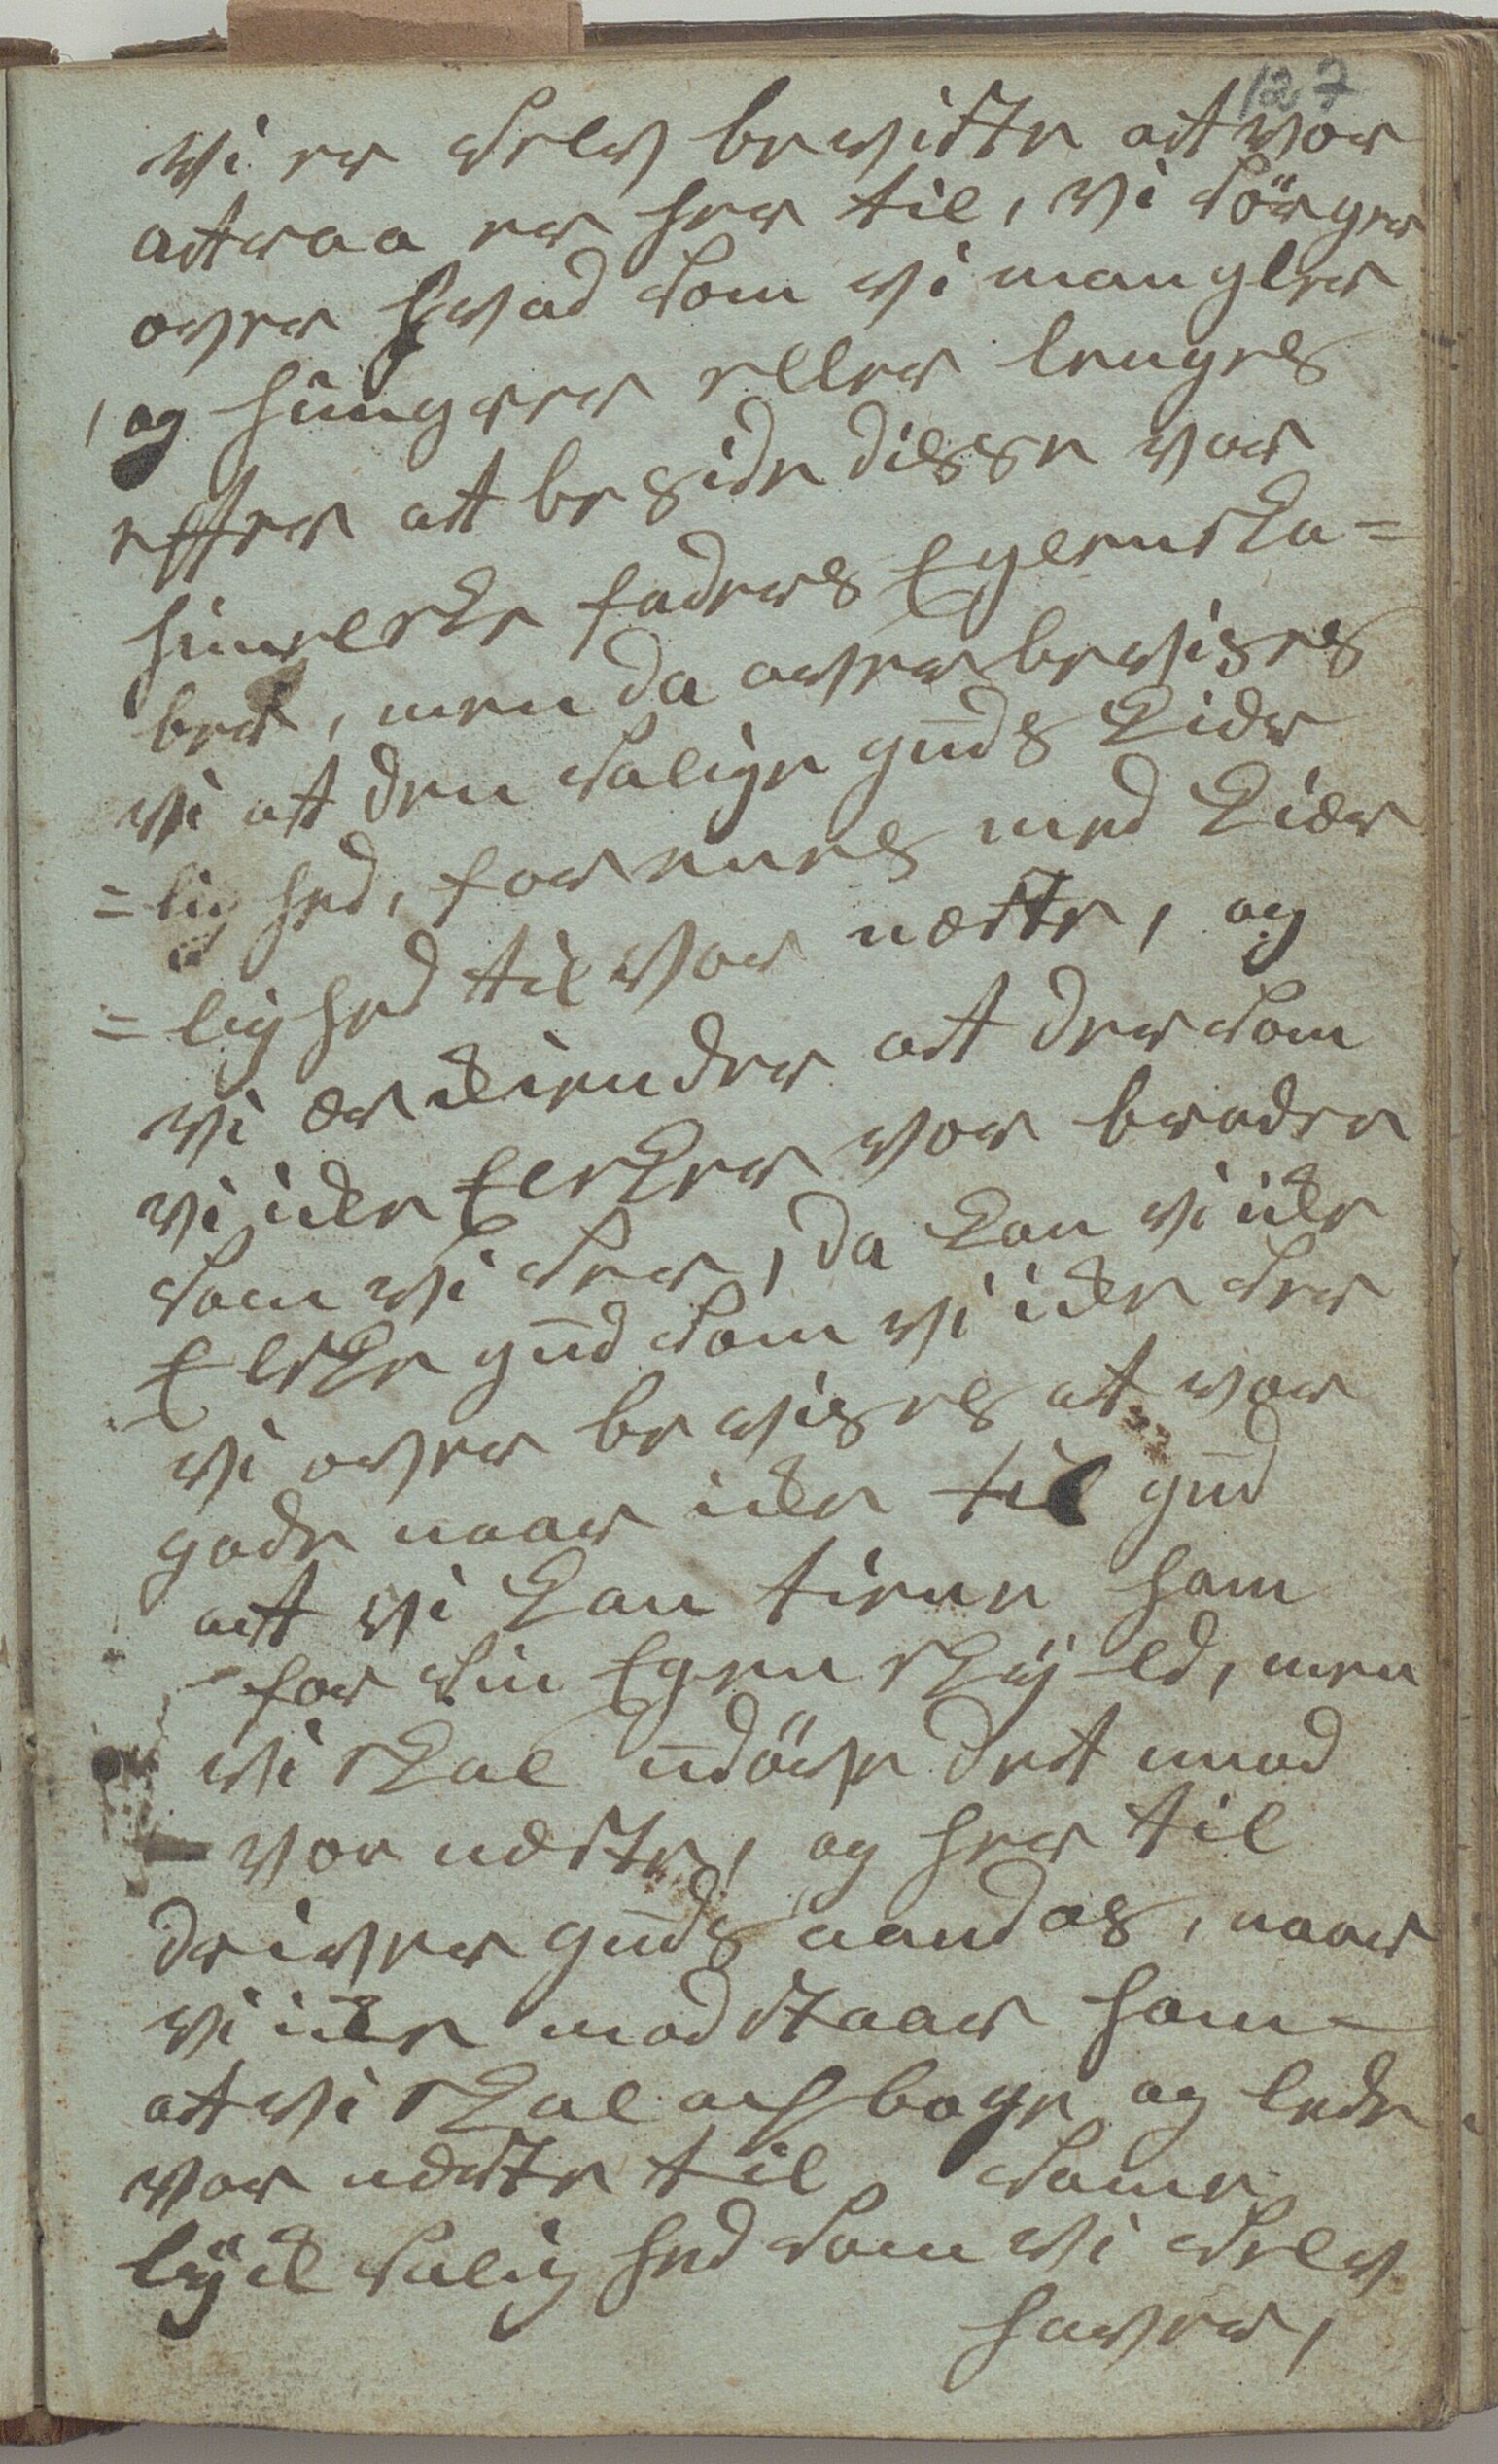 127
vi er selv beviste at vor
attraa er her til, vi sörger
over hvad som vi mangler
, og hungrer eller lenges
effter at beside disse vor
himelske faders Egenska=
ber, men da overbevises
vi at den salige guds kier
=lighed, forenes med kier
=lighed til vor næste, og
vi erkiender at der som
vi icke Elsker vor broder
som vi ser, da kan vi icke
Elske gud som vi icke ser
vi over bevises at vor
gode naar icke til gud
at vi kan tiene ham
for sin Egen skyld, men
vi skal udöve det mod
vor næste, og her til
driver guds aand os, naar
vi icke modstaar ham
at vi skal och boge og lede
vor næste til same
lycksalighed som vi selv
haver,